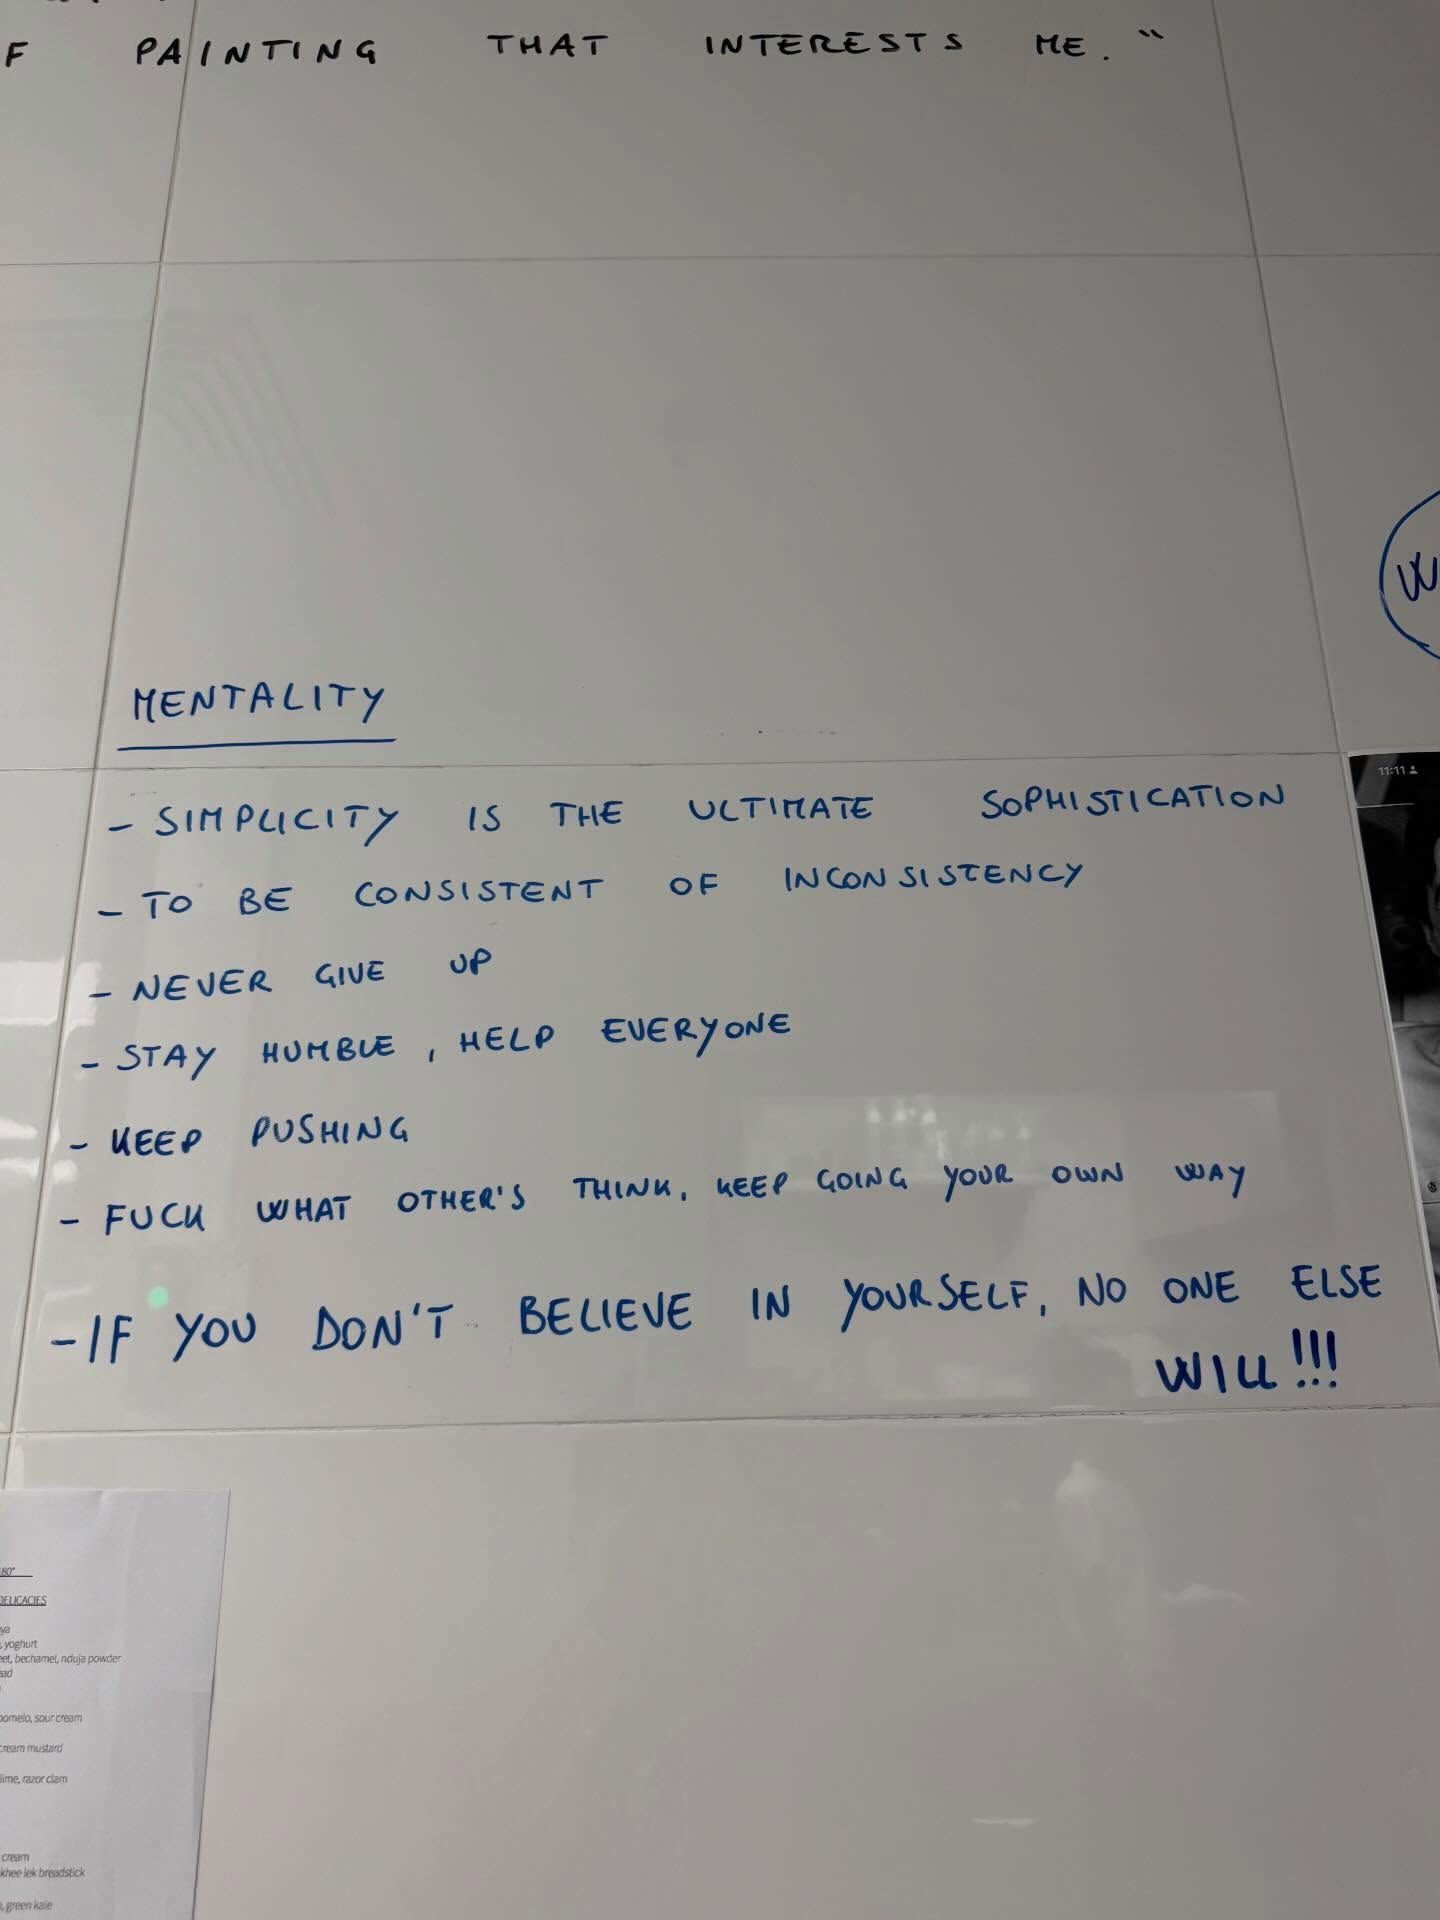 F PAINTING THAT INTERESTS ME."
MENTALITY
- SIMPLICITY IS THE ULTIMATE SOPHISTICATION
- TO BE CONSISTENT OF INCONSISTENCY
- NEVER GIVE UP
- STAY HUMBLE, HELP EVERYONE
- KEEP PUSHING
- FUCK WHAT OTHER'S THINK, KEEP GOING YOUR OWN WAY
- IF YOU DON'T BELIEVE IN YOURSELF, NO ONE ELSE
WILL!!!
11:11
80°
DELICACIES
, yoghurt
eet, bechamel, nduja powder
ead
pomelo, sour cream
cream mustard
lime, razor clam
cream
khee lek breadstick
, green kale